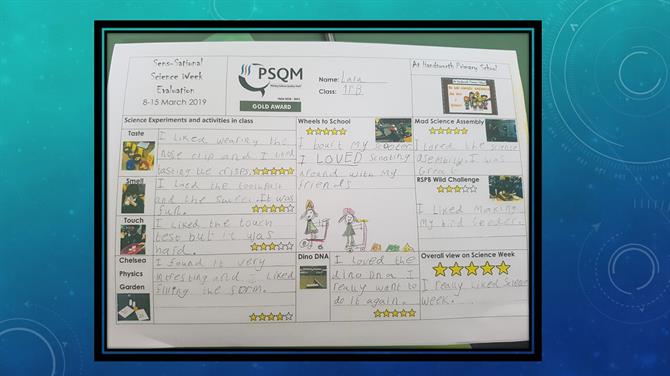 Sens-Sational
Science Week
Evaluation
8-15 March 2019
PSQM
GOLD AWARD
Name: Lara
Class: 1PB
At Handsworth Primary School
Science Experiments and activities in class
Taste
I liked wearing the
nose clip and I liked
tasting the crisps.
Smell
I liked the toothpast
and the sweet. It was
fun.
Touch
I liked the touch
test but it was
hard.
Chelsea
Physics
Garden
I found it very
intresting and I liked
filling the form.
Wheels to School
I bourt my scooter
I LOVED scooting
around with my
friends
Dino DNA
I loved the
dino Dna I
really want to
do it again.
Mad Science Assembly
I loved the science
asembly. I was
Great
RSPB Wild Challenge
I liked Making
my bird feeder.
Overall view on Science Week
I really liked Science
week.